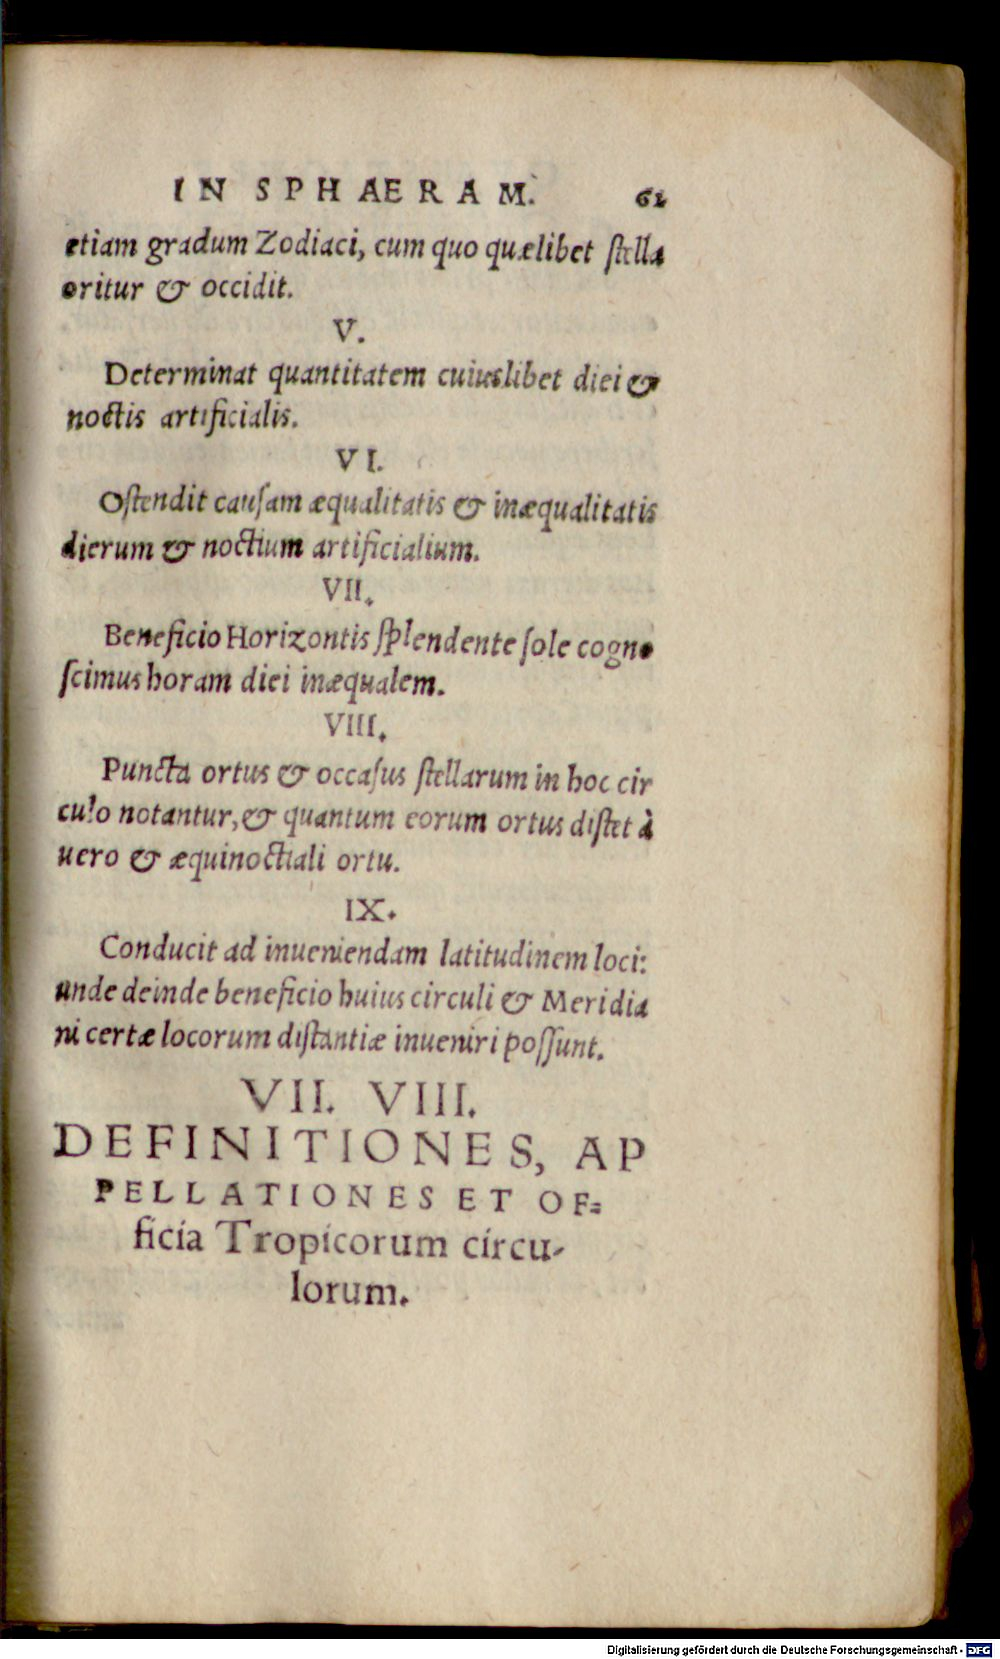 IN SPHAERAM. 62
etiam gradum Zodiaci, cum quo quælibet ſtella
oritur & occidit.
V.
Determinat quantitatem cuiuslibet diei &
noctis artificialis.
VI.
Oſtendit cauſam æqualitatis & inæqualitatis
dierum & noctium artificialium.
VII.
Beneficio Horizontis ſplendente ſole cogno
ſcimus horam diei inæqualem.
VIII.
Puncta ortus & occaſus ſtellarum in hoc cir
culo notantur, & quantum eorum ortus diſtet à
uero & æquinoctiali ortu.
IX.
Conducit ad inueniendam latitudinem loci:
unde deinde beneficio huius circuli & Meridia
ni certæ locorum diſtantiæ inueniri poſſunt.
VII. VIII.
DEFINITIONES, AP
PELLATIONES ET OF=
ficia Tropicorum circu-
lorum.
Digitalisierung gefördert durch die Deutsche Forschungsgemeinschaft - DFG